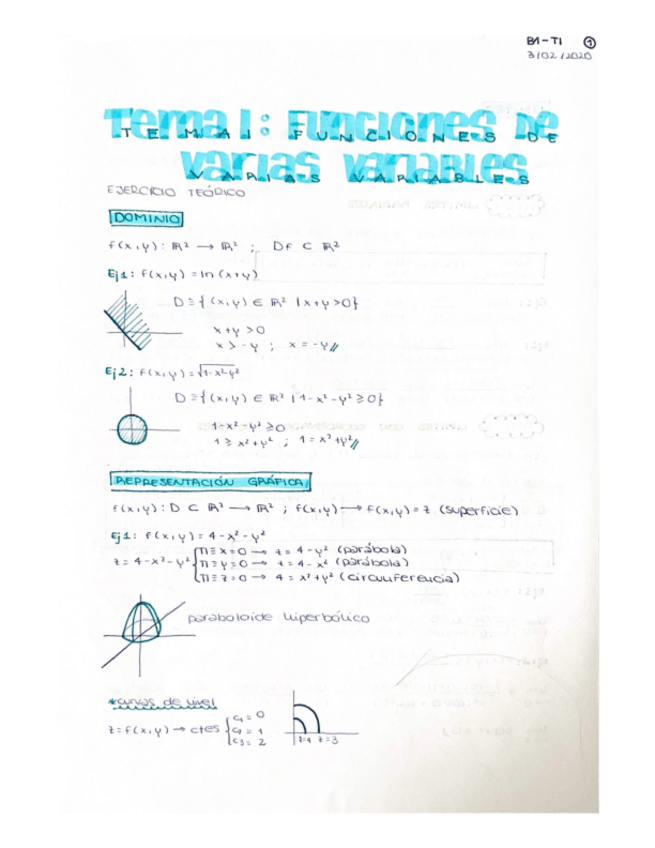 B1-T1 ①
3/02/2020
Tema 1: Funciones de
TEMA 1: FUNCIONES DE
varias variables
VARIAS VARIABLES
EJERCICIO TEÓRICO
DOMINIO
f(x,y): ℝ² → ℝ² ; Df ⊂ ℝ²
Ej1: f(x,y) = ln(x+y)
D ≡ {(x,y) ∈ ℝ² | x+y>0}
x+y>0
x>-y ; x=-y//
Ej2: f(x,y) = √1-x²-y²
D ≡ {(x,y) ∈ ℝ² | 1-x²-y² ≥ 0}
1-x²-y² ≥ 0
1 ≥ x²+y² ; 1 = x²+y²//
REPRESENTACIÓN GRÁFICA
f(x,y): D ⊂ ℝ² → ℝ² ; f(x,y) → f(x,y) = z (superficie)
Ej1: f(x,y) = 4-x²-y²
z = 4-x²-y² { Π ≡ x=0 → z = 4-y² (parábola)
Π ≡ y=0 → z = 4-x² (parábola)
Π ≡ z=0 → 4 = x²+y² (circunferencia)
paraboloide hiperbólico
*curvas de nivel
z = f(x,y) → ctes { c₁ = 0
c₂ = 1
c₃ = 2
z=4 z=3